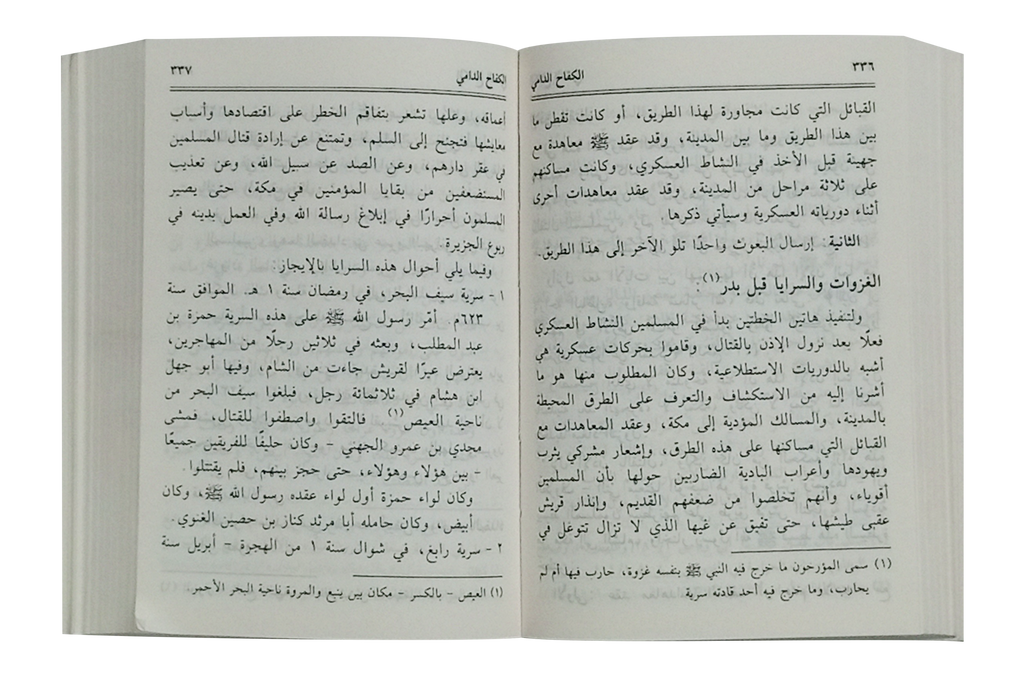 ٣٣٦
الكفاح الدامي
القبائل التي كانت مجاورة لهذا الطريق، أو كانت تقطن ما
بين هذا الطريق وما بين المدينة، وقد عقد ﷺ معاهدة مع
جهينة قبل الأخذ في النشاط العسكري، وكانت مساكنهم
على ثلاثة مراحل من المدينة، وقد عقد معاهدات أخرى
أثناء دورياته العسكرية وسيأتي ذكرها.
الثانية: إرسال البعوث واحدًا تلو الآخر إلى هذا الطريق.
الغزوات والسرايا قبل بدر(١).
ولتنفيذ هاتين الخطتين بدأ في المسلمين النشاط العسكري
فعلًا بعد نزول الإذن بالقتال، وقاموا بحركات عسكرية هي
أشبه بالدوريات الاستطلاعية، وكان المطلوب منها هو ما
أشرنا إليه من الاستكشاف والتعرف على الطرق المحيطة
بالمدينة، والمسالك المؤدية إلى مكة، وعقد المعاهدات مع
القبائل التي مساكنها على هذه الطرق، وإشعار مشركي يثرب
ويهودها وأعراب البادية الضاربين حولها بأن المسلمين
أقوياء، وأنهم تخلصوا من ضعفهم القديم، وإنذار قريش
عقبى طيشها، حتى تفيق عن غيها الذي لا تزال تتوغل في
(١) سمى المؤرخون ما خرج فيه النبي ﷺ بنفسه غزوة، حارب فيها أم لم
يحارب، وما خرج فيه أحد قادته سرية
٣٣٧
الكفاح الدامي
أعماقه، وعلها تشعر بتفاقم الخطر على اقتصادها وأسباب
معايشها فتجنح إلى السلم، وتمتنع عن إرادة قتال المسلمين
في عقر دارهم، وعن الصد عن سبيل الله، وعن تعذيب
المستضعفين من بقايا المؤمنين في مكة، حتى يصير
المسلمون أحرارًا في إبلاغ رسالة الله وفي العمل بدينه في
ربوع الجزيرة.
وفيما يلي أحوال هذه السرايا بالإيجاز:
١- سرية سيف البحر، في رمضان سنة ١ هـ. الموافق سنة
٦٢٣م. أمّر رسول الله ﷺ على هذه السرية حمزة بن
عبد المطلب، وبعثه في ثلاثين رجلًا من المهاجرين،
يعترض عيرًا لقريش جاءت من الشام، وفيها أبو جهل
ابن هشام في ثلاثمائة رجل، فبلغوا سيف البحر من
ناحية العيص(١) فالتقوا واصطفوا للقتال، فمشى
مجدي بن عمرو الجهني - وكان حليفًا للفريقين جميعًا
- بين هؤلاء وهؤلاء، حتى حجز بينهم، فلم يقتتلوا.
وكان لواء حمزة أول لواء عقده رسول الله ﷺ، وكان
أبيض، وكان حامله أبا مرثد كناز بن حصين الغنوي.
٢- سرية رابغ، في شوال سنة ١ من الهجرة - أبريل سنة
(١) العيص - بالكسر - مكان بين ينبع والمروة ناحية البحر الأحمر.